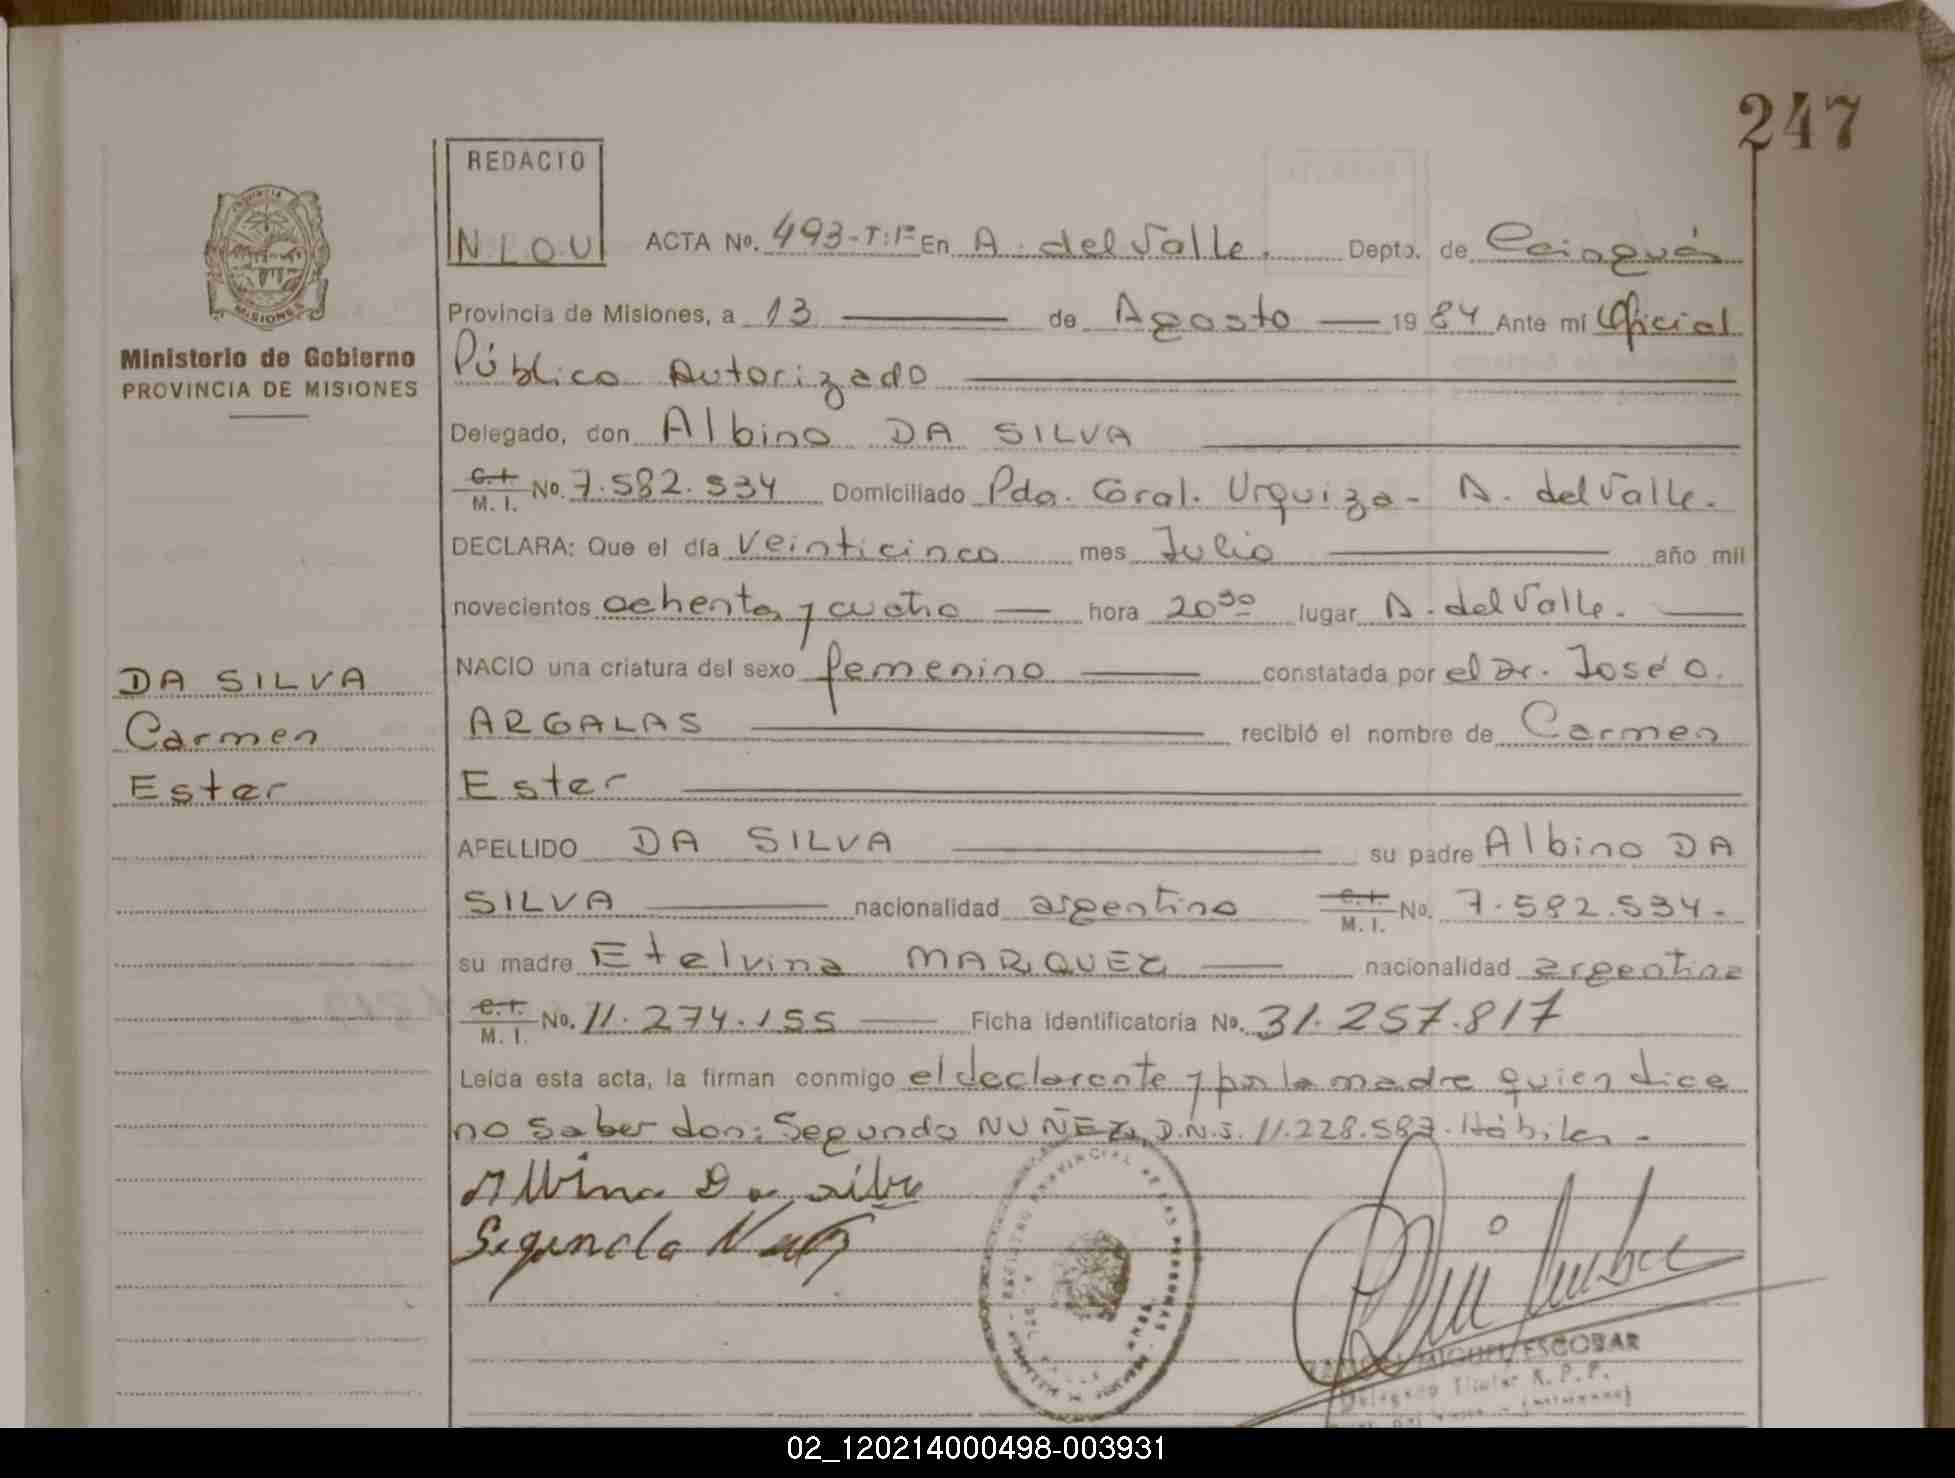 247
REDACTO
N L O U
ACTA No. 493-T:1º En A. del Valle. Depto. de Cainguás
Provincia de Misiones, a 13 de Agosto 1984 Ante mi Oficial
Público Autorizado
Delegado, don Albino DA SILVA
C.I. M. I. No. 7.582.534 Domiciliado Pda. Gral. Urquiza - A. del Valle.
DECLARA: Que el día veinticinco mes Julio año mil
novecientos ochenta y cuatro hora 20³⁰ lugar A. del Valle.
NACIO una criatura del sexo femenino constatada por el Dr. José O.
ARGALAS recibió el nombre de Carmen
Ester
APELLIDO DA SILVA su padre Albino DA
SILVA nacionalidad argentino C.I. M. I. No. 7.582.534.
su madre Etelvina MARQUEZ nacionalidad argentina
C.I. M. I. No. 11.274.155 Ficha Identificatoria No. 31.257.817
Leída esta acta, la firman conmigo el declarante y por la madre quien dice
no saber don: Segundo NUÑEZ, D.N.I. 11.228.587. Hábiles.
Albino Da silva
Segundo Nuñez
MIGUEL ESCOBAR
Delegado Titular R. P. P.
PROVINCIA
MISIONES
Ministerio de Gobierno
PROVINCIA DE MISIONES
DA SILVA
Carmen
Ester
REGISTRO PROVINCIAL DE LAS PERSONAS
02_120214000498-003931